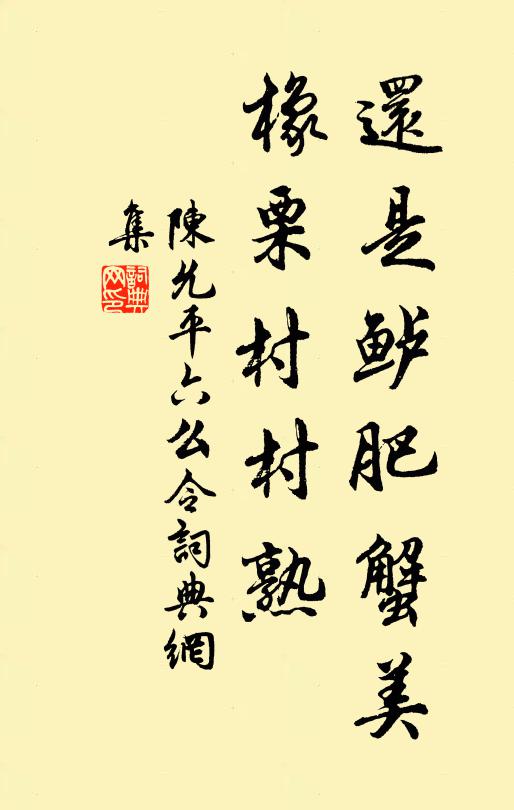 還是鲈肥蟹美
橡栗村村熟
陳允平六幺令詞典網
集
詞典
网印